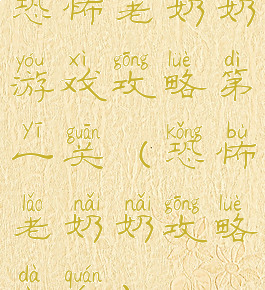 恐怖老奶奶
yóu xì gōng lüè dì
游戏攻略第
yī guān kǒng bù
一关(恐怖
lǎo nǎi nǎi gōng lüè
老奶奶攻略
dà quán